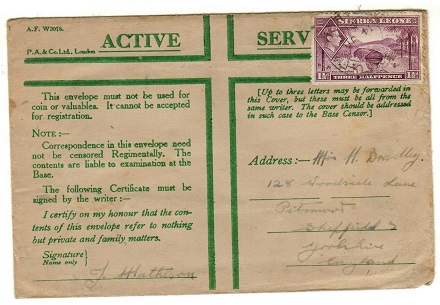 A.F. W3078.
P.A.& Co.Ltd., London
ACTIVE SERV
SIERRA LEONE
1½D 1½D
THREE HALFPENCE
This envelope must not be used for
coin or valuables. It cannot be accepted
for registration.
NOTE :—
Correspondence in this envelope need
not be censored Regimentally. The
contents are liable to examination at the
Base.
The following Certificate must be
signed by the writer :—
I certify on my honour that the con-
tents of this envelope refer to nothing
but private and family matters.
Signature
Name only
J. Matheson
[Up to three letters may be forwarded in
this Cover, but these must be all from the
same writer. The cover should be addressed
in such case to the Base Censor.]
Address :— Miss H. Bradley
128 Woodside Lane
Pitsmoor
Sheffield 3
Yorkshire
England